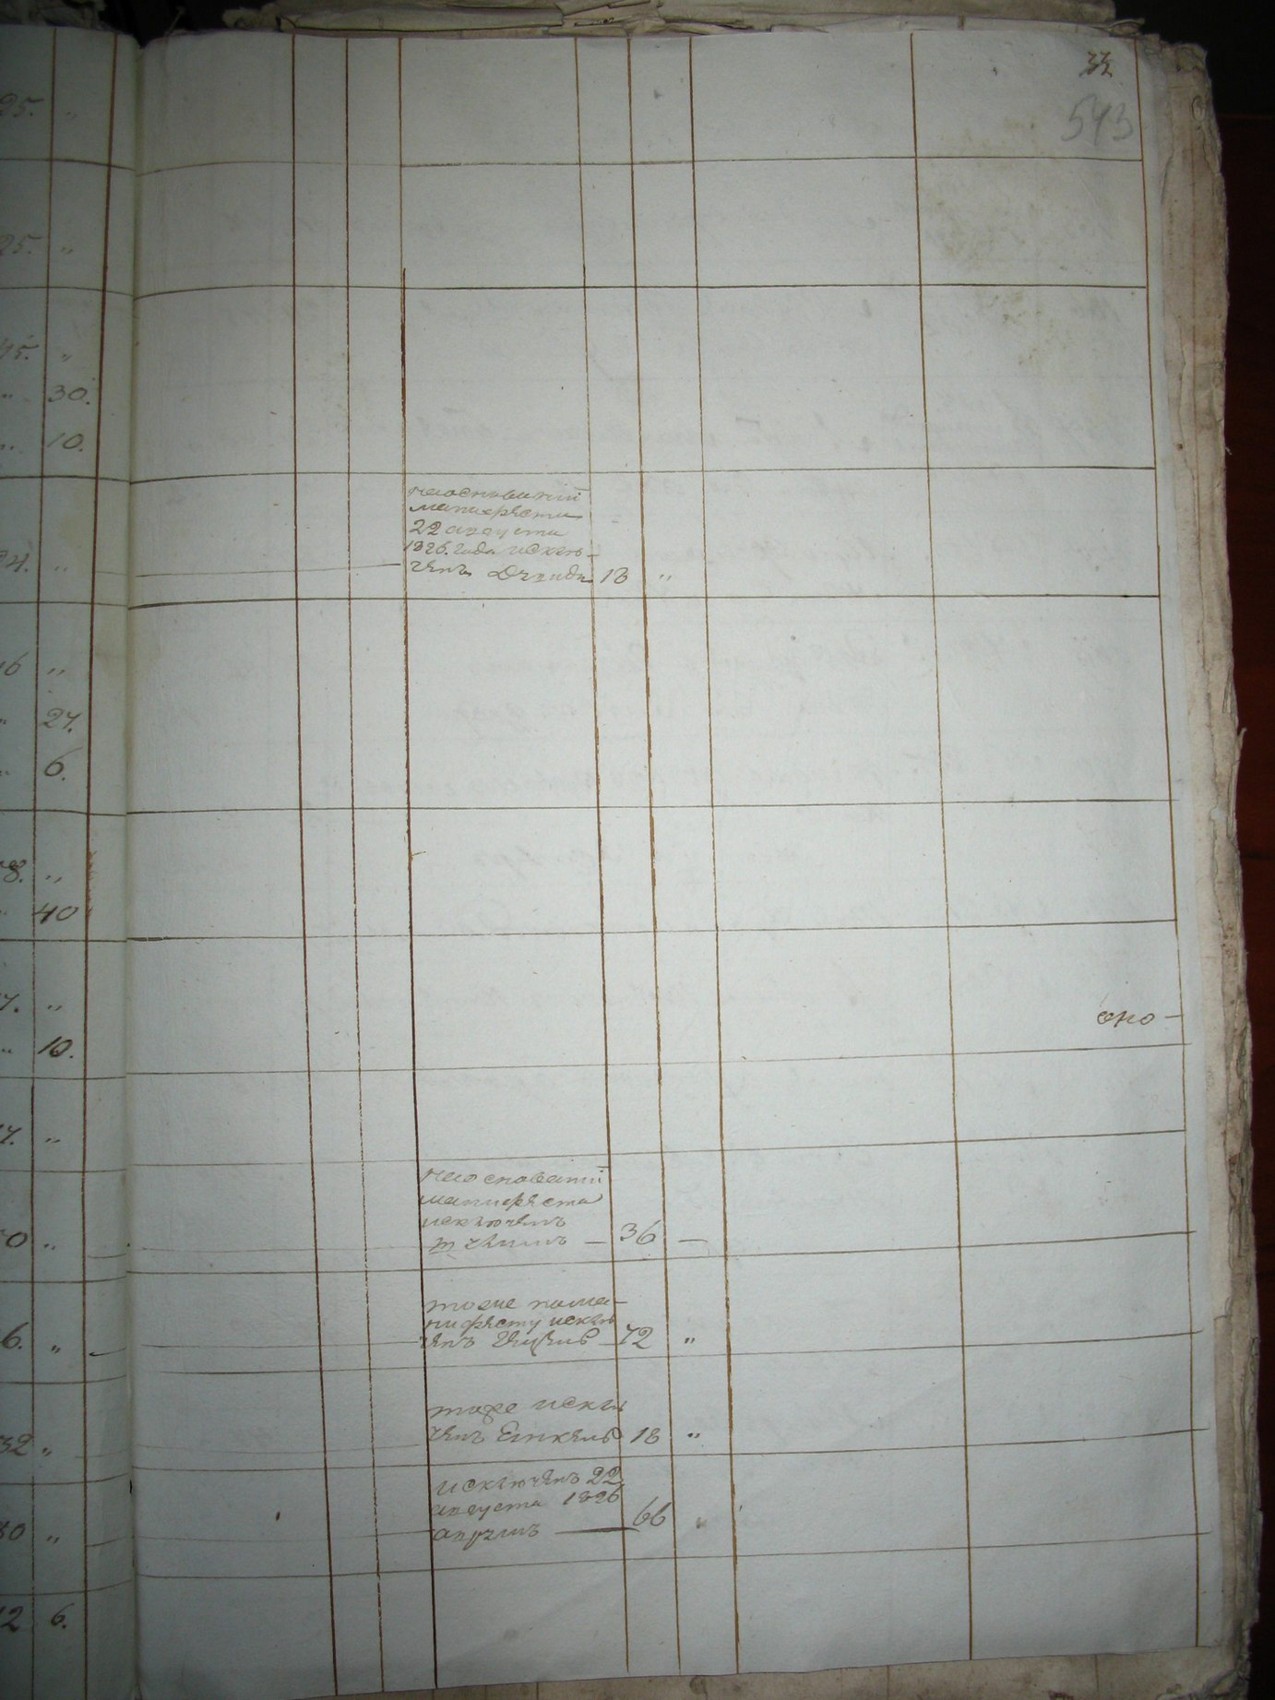 33
543
95. „
25. „
45. „
„ 30.
„ 10.
на основаніи
манифеста
22 августа
1826. года исклю-
ченъ 18 „
34. „
16 „
„ 27.
„ 6.
78. „
„ 40
7. „
„ 10.
оно-
7. „
на основаніи
манифеста
исключенъ
36 —
0 „
тоже пома-
нифесту исклю
ченъ 72 „
6. „
тоже исклю
ченъ 18 „
32 „
исключенъ 22
августа 1826
66 „
30 „
12 6.